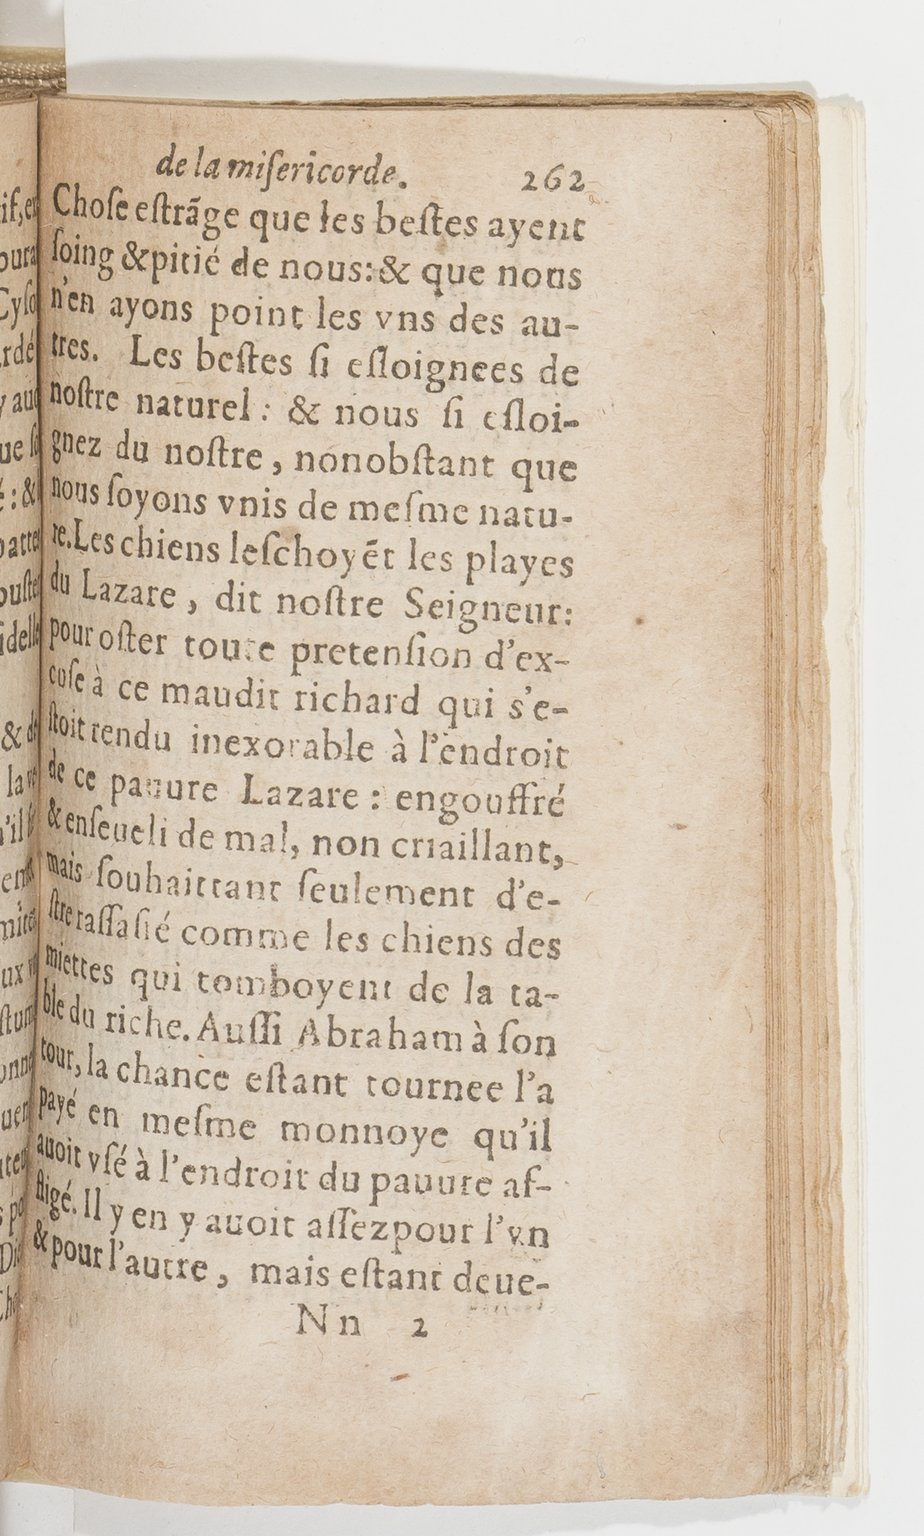 de la miſericorde. 262
Choſe eſtrãge que les beſtes ayent
ſoing &pitié de nous:& que nous
n'en ayons point les vns des au-
tres. Les beſtes ſi eſloignees de
noſtre naturel: & nous ſi eſloi-
gnez du noſtre, nonobſtant que
nous ſoyons vnis de meſme natu-
re.Les chiens leſchoyẽt les playes
du Lazare, dit noſtre Seigneur:
pour oſter toute pretenſion d'ex-
cuſe à ce maudit richard qui s'e-
ſtoit rendu inexorable à l'endroit
de ce pauure Lazare: engouffré
& enſeueli de mal, non criaillant,
mais ſouhaittant ſeulement d'e-
ſtre raſſaſié comme les chiens des
miettes qui tomboyent de la ta-
ble du riche. Auſſi Abraham à ſon
tour, la chance eſtant tournee l'a
payé en meſme monnoye qu'il
auoit vſé à l'endroit du pauure af-
fligé. Il y en y auoit aſſez pour l'vn
& pour l'autre, mais eſtant deue-
Nn 2